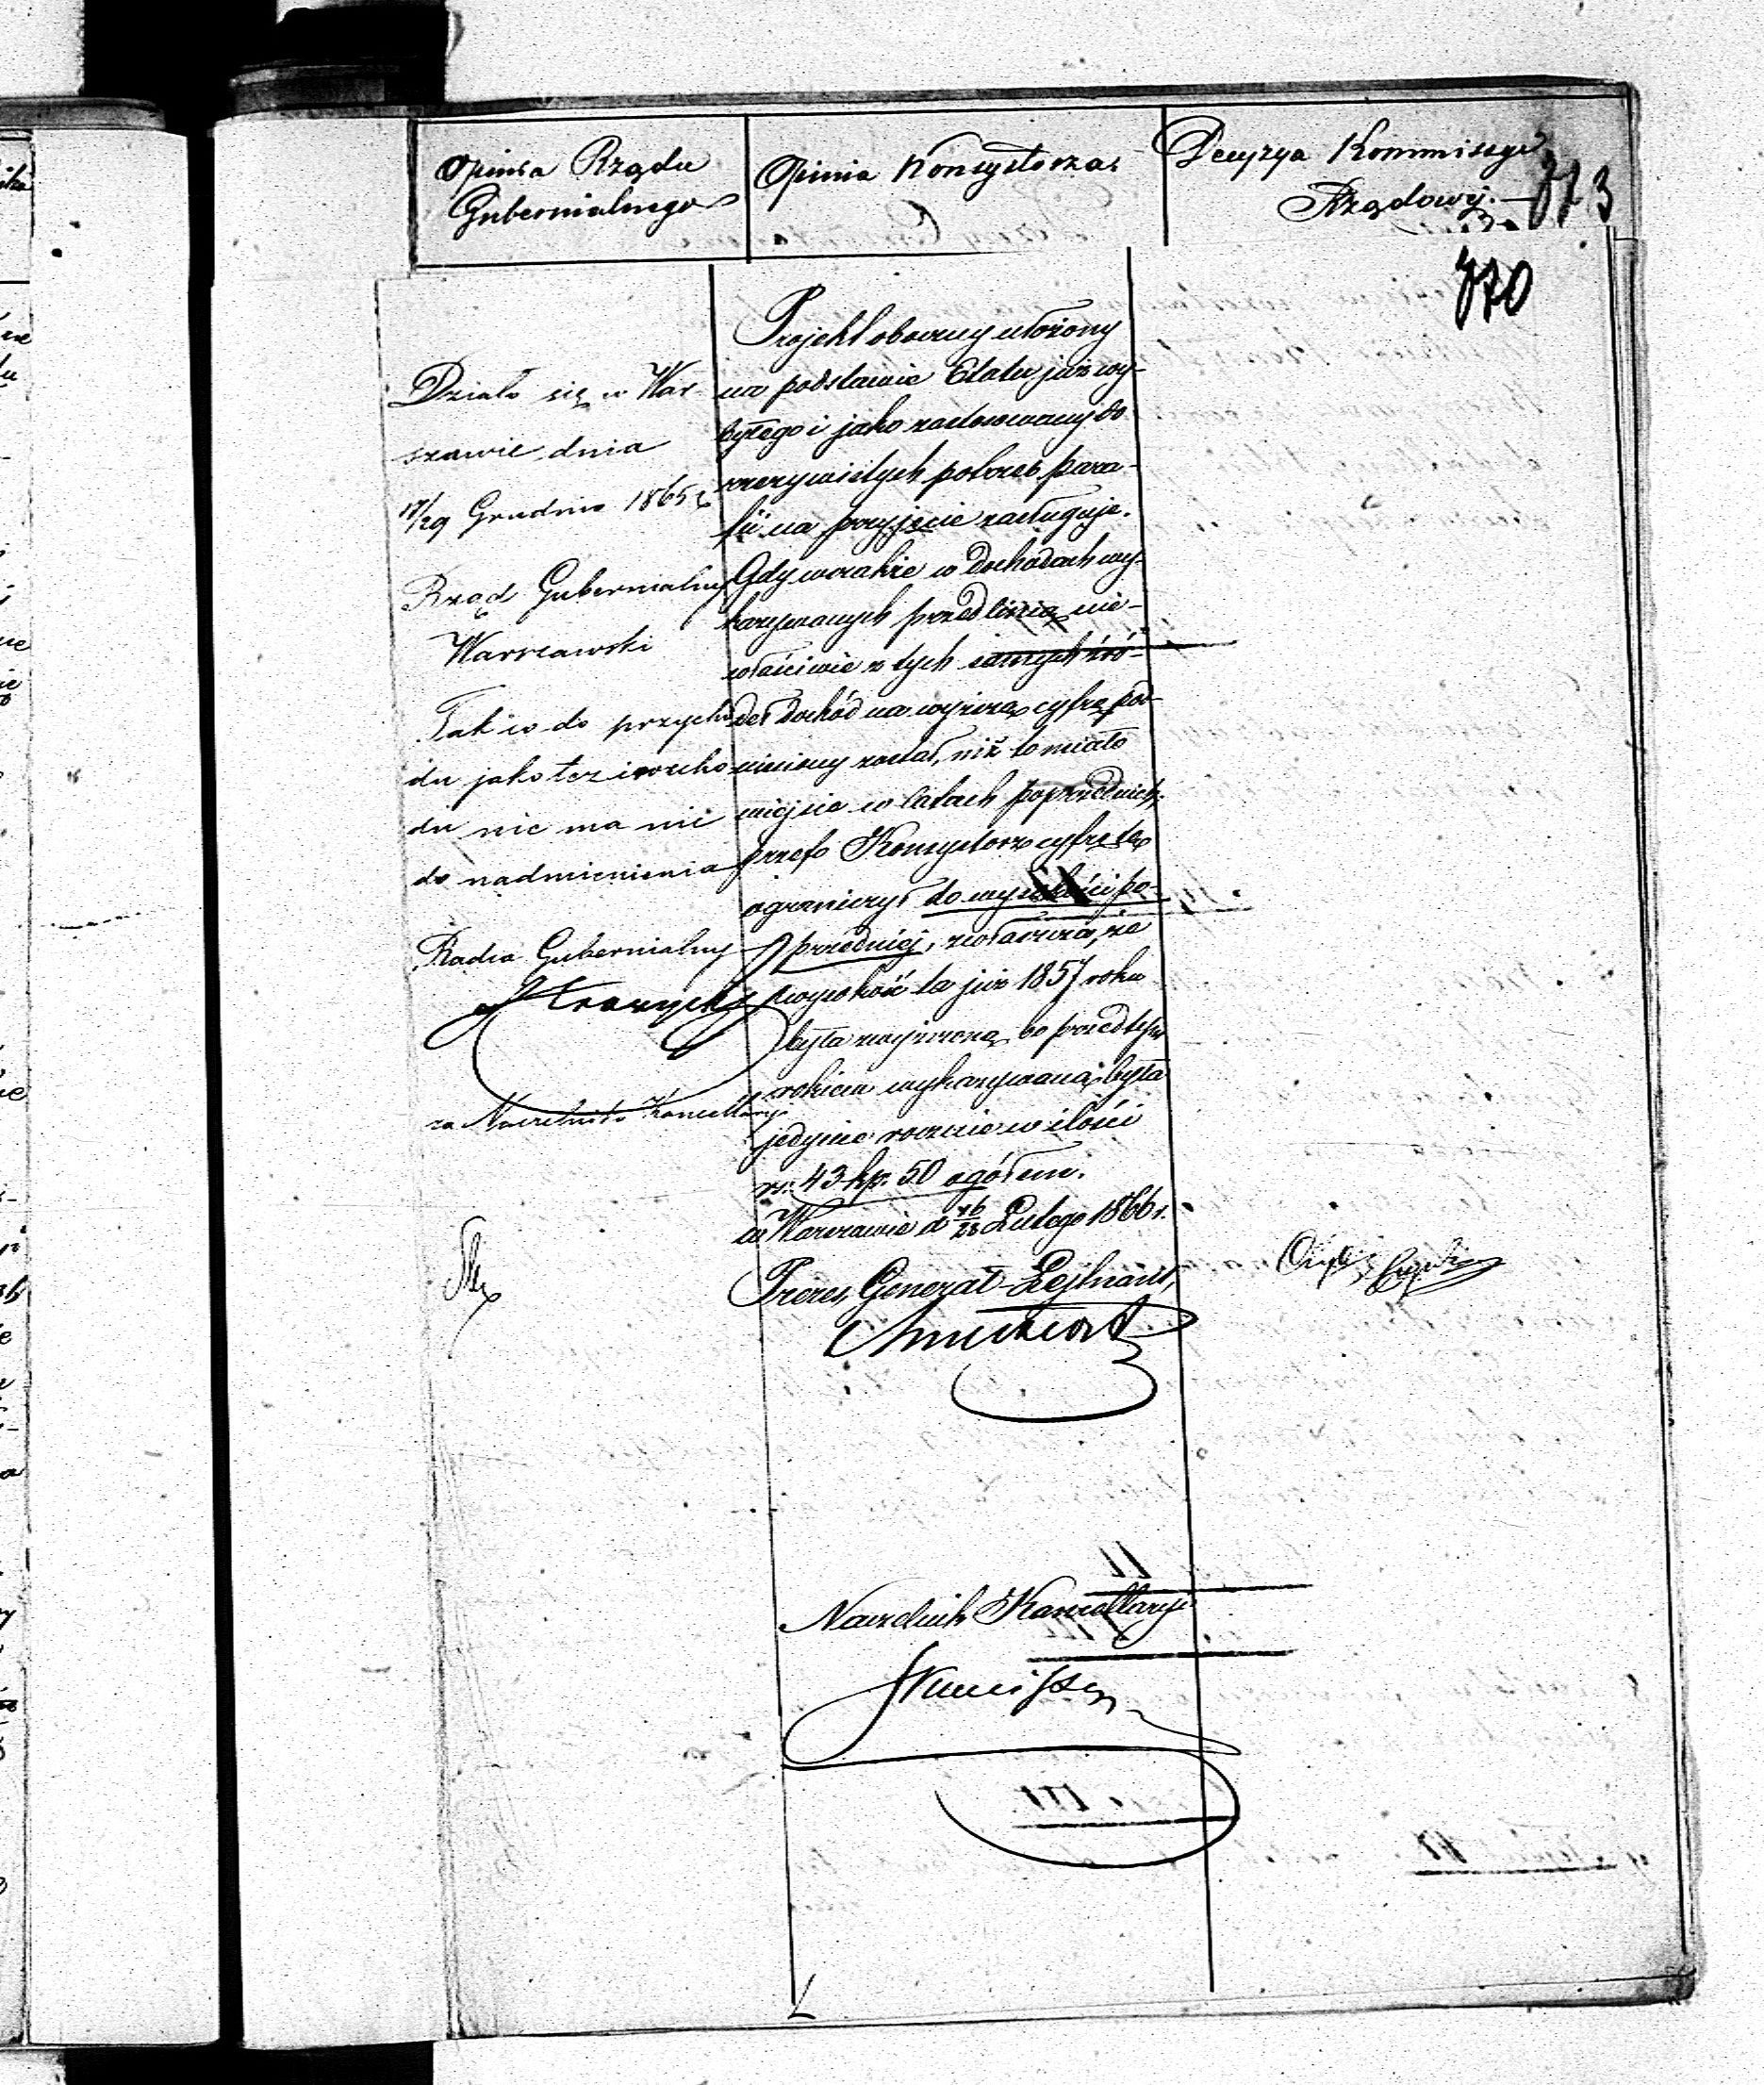 Opinia Rządu
Gubernialnego
Opinia Konsystorza.
Decyzya Kommisyi
Rządowéj.
873
870
Działo się w War-
szawie dnia
17/29 Grudnia 1865 r.
Rząd Gubernialny
Warszawski
Tak co do przycho
du jako też i rozcho
du nic ma nic
do nadmienienia
Radca Gubernialny
za Naczelnika Kancellaryi
Projekt obecny ułożony
na podstawie Etatu już wy-
byłego i jako zastosowany do
rzeczywistych potrzeb para-
fii na przyjęcie zasługuje.
Gdy wszakże w dochodach wy-
kazywanych przed linią nie-
właściwie z tych samych źró-
deł dochód na wyższą cyfrę pod-
niesiony został, niż to miało
miejsce w latach poprzednich,
przeto Konsystorz cyfrę tę
ograniczył do wysokości po-
przedniej, zwłaszcza, że
wysokość ta już 1857 roku
była zwyższona, bo przed tym
rokiem wykazywaną była
jedynie rocznie w ilości
rs. 43 kp. 50 ogółem.
w Warszawie d 16/28 Lutego 1866 r.
Prezes, Generał-Lejtnant,
Naczelnik Kancellaryi